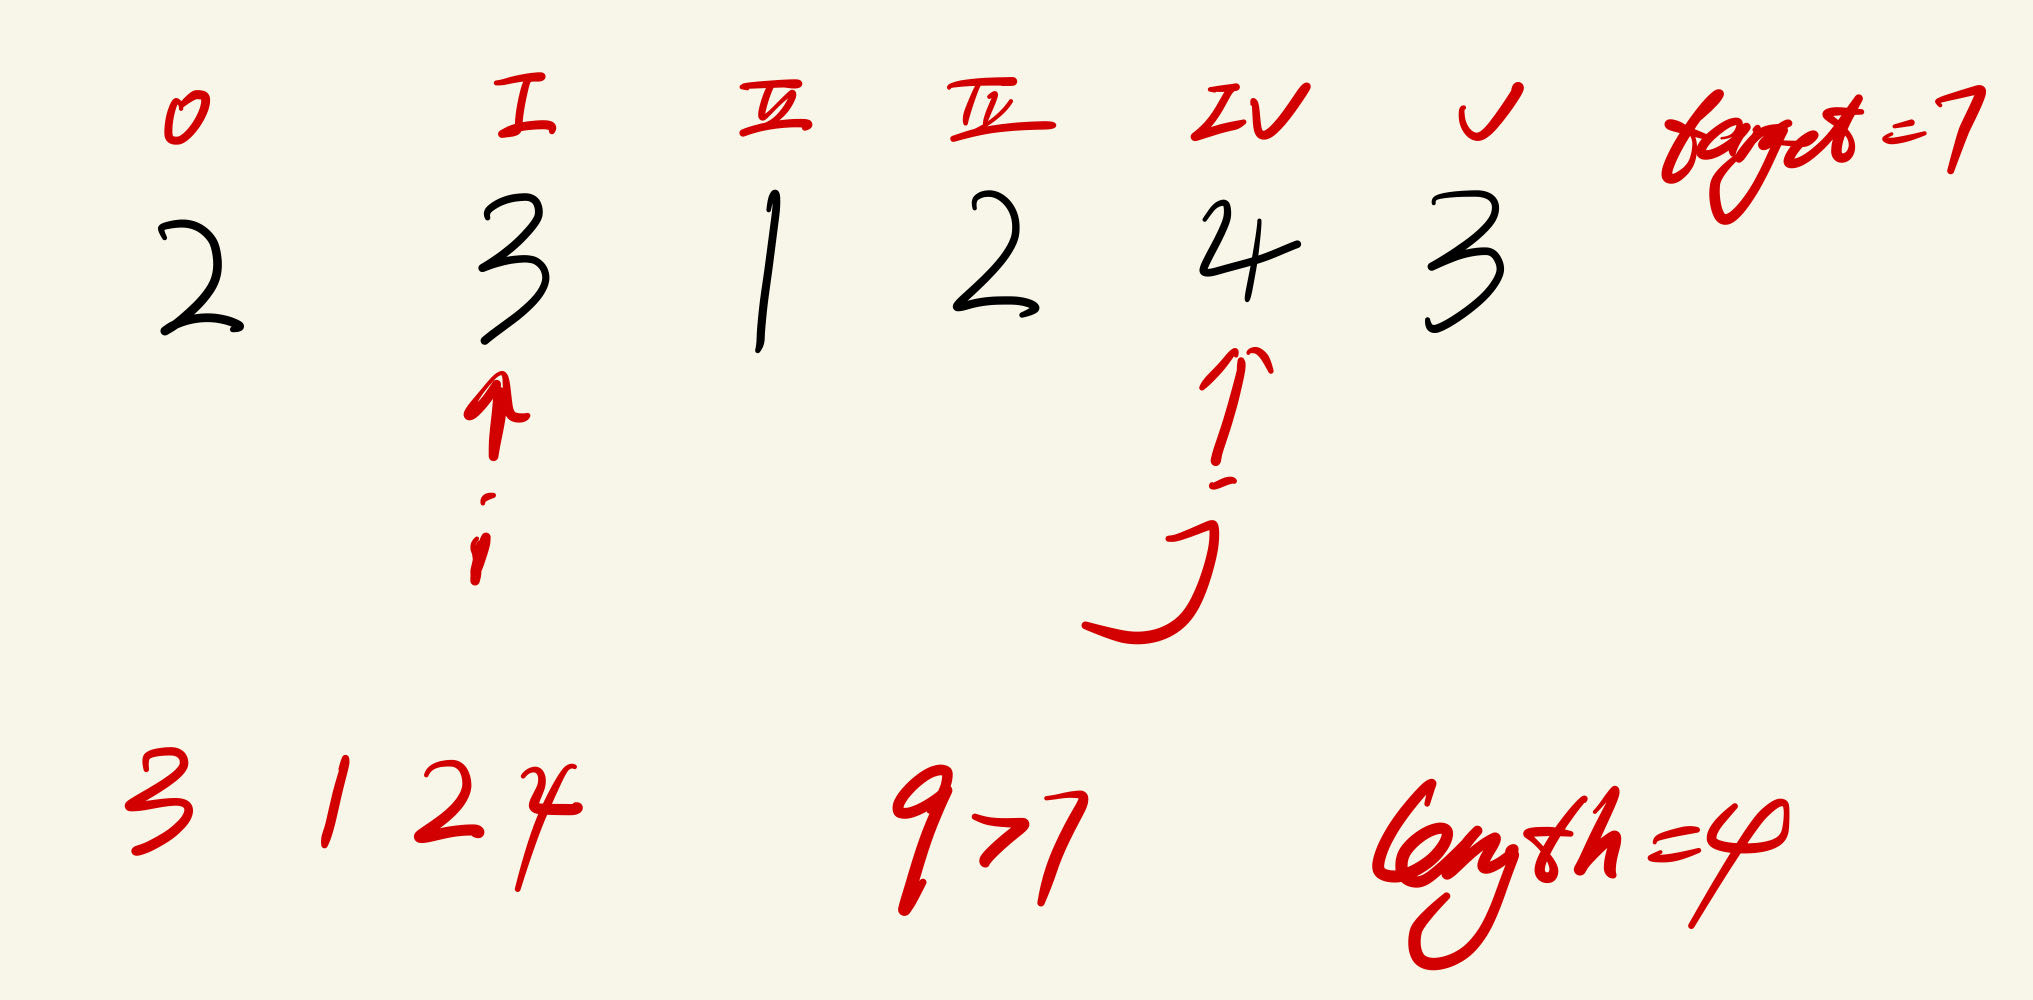 0 I II III IV V target=7
2 3 1 2 4 3
i j
3 1 2 4 9>7 length=4